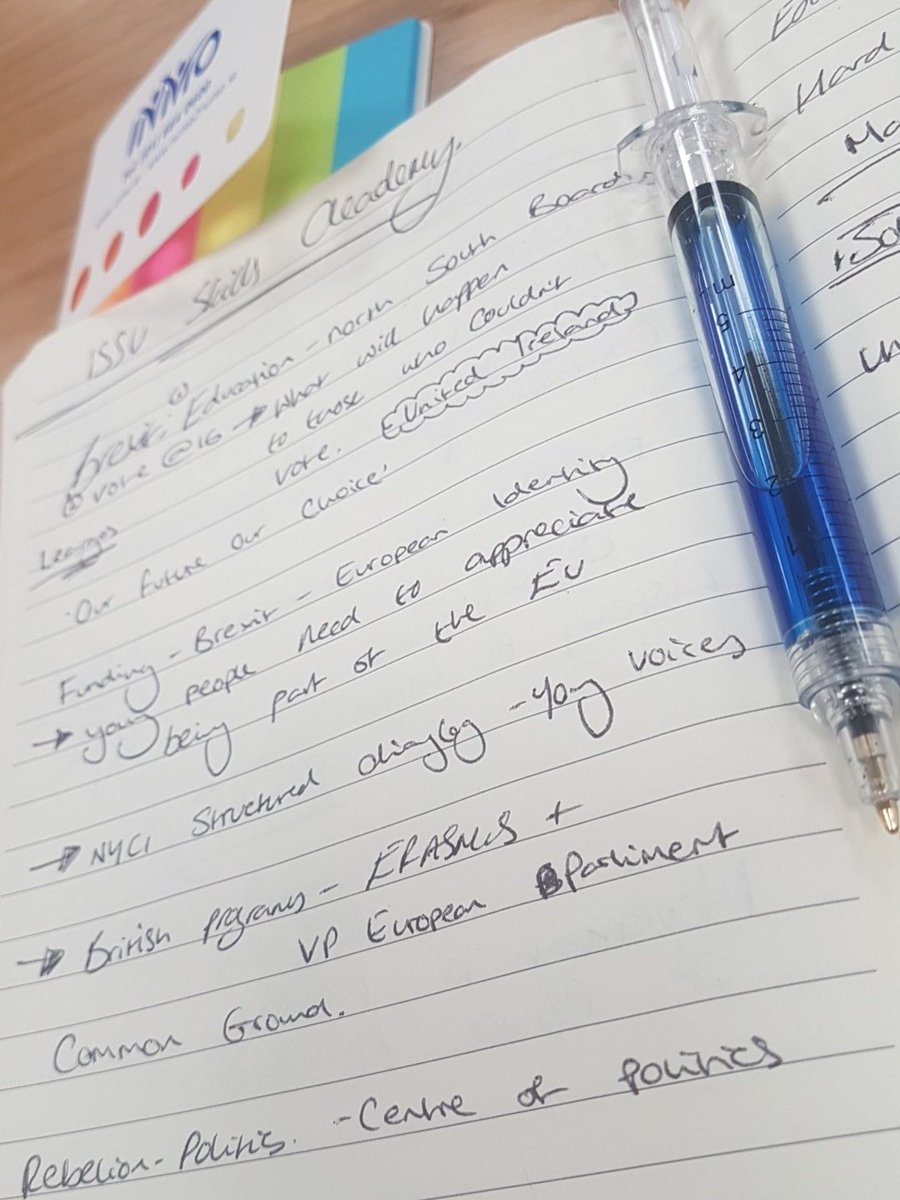 INMO
ISSU Skills Academy.
Brexit: ① Education - north South Board
② vote @16 → What will happen
to those who couldn't
vote. United Ireland
'Our future Our Choice'
Funding - Brexit - European Identity
→ young people need to appreciate
being part of the EU
→ NYCI Structured - Yong voices
→ British programs - ERASMUS +
VP European Parliment
Common Ground.
Rebelion - Politics. - Centre of politics
Hard
5
4
3
2
1